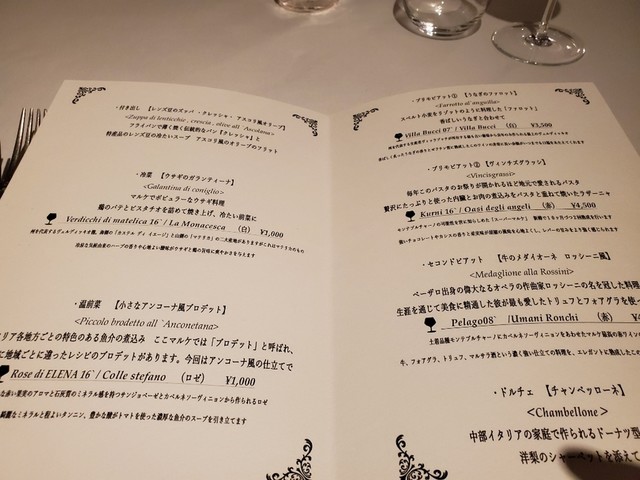 ・付き出し 【レンズ豆のズッパ ・クレッシャ・ アスコリ風オリーブ】
<Zuppa di lenticchie , crescia , olive all' Ascolana>
フライパンで薄く焼く伝統的なパン【クレッシャ】と
特産品のレンズ豆の冷たいスープ アスコリ風オリーブのフリット
・冷菜 【ウサギのガランティーナ】
<Galantina di coniglio>
マルケでポピュラーなウサギ料理
鶏のパテとピスタチオを詰めて焼き上げ、冷たい前菜に
Verdicchi di matelica 16` / La Monacesca (白) ¥1,000
・温前菜 【小さなアンコーナ風ブロデット】
<Piccolo brodetto all `Anconetana>
リア各地方ごとの特色のある魚介の煮込み ここマルケでは「ブロデット」と呼ばれ、
に地域ごとに違ったレシピのブロデットがあります。今回はアンコーナ風の仕立てで
Rose di ELENA 16` / Colle stefano (ロゼ) ¥1,000
な赤い果実のアロマと石灰質のミネラル感を持つサンジョベーゼとカベルネソーヴィニョンから作られるロゼ
綺麗なミネラルと程よいタンニン、豊かな酸がトマトを使った濃厚な魚介のスープを引き立てます
・プリモピアット① 【うなぎのファロット】
<Farrotto al'anguilla>
スペルト小麦をリゾットのように料理した「ファロット」
香ばしいうなぎと合わせて
Villa Bucci 07` / Villa Bucci (白) ¥3,500
・プリモピアット② 【ヴィンチスグラッシ】
<Vincisgrassi>
毎年このパスタのお祭りが開かれるほど地元で愛されるパスタ
贅沢にたっぷりと使った内臓とお肉の煮込みをパスタと重ねて焼いたラザーニャ
Kurni 16` / Oasi degli angeli (赤) ¥4,500
・セコンドピアット 【牛のメダイオーネ ロッシーニ風】
<Medaglione alla Rossini>
ペーザロ出身の偉大なるオペラの作曲家ロッシーニの名を冠した料理
生涯を通じて美食に精通した彼が最も愛したトリュフとフォアグラを使っ
Pelago08` /Umani Ronchi (赤) ¥4
牛、フォアグラ、トリュフ、マルサラ酒という濃く強い仕立ての料理を、エレガントに熟成したこの
・ドルチェ 【チャンベッローネ】
<Chambellone>
中部イタリアの家庭で作られるドーナツ型
洋梨のシャーベットを添えて